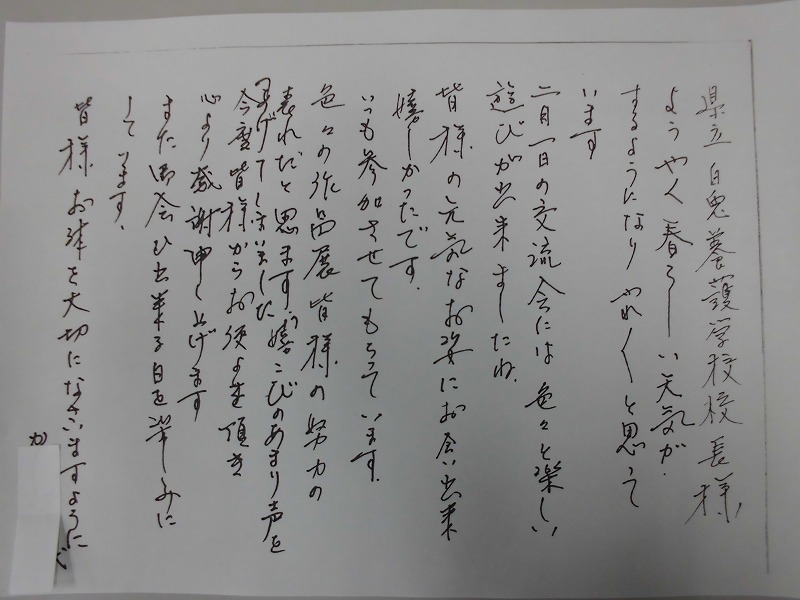 県立白鬼養護学校校長様
ようやく春らしい天気が
するようになりやれやれと思って
います
二月一日の交流会には色々と楽しい
遊びが出来ましたね
皆様の元気なお姿にお会い出来
嬉しかったです。
いつも参加させてもらっています。
色々の作品展皆様の努力の
表れだと思ます。嬉こびのあまり声を
あげてしまいました
今度皆様からお便よを頂き
心より感謝申し上げます
また御会ひ出来る日を楽しみに
しています。
皆様お体を大切になさいますように